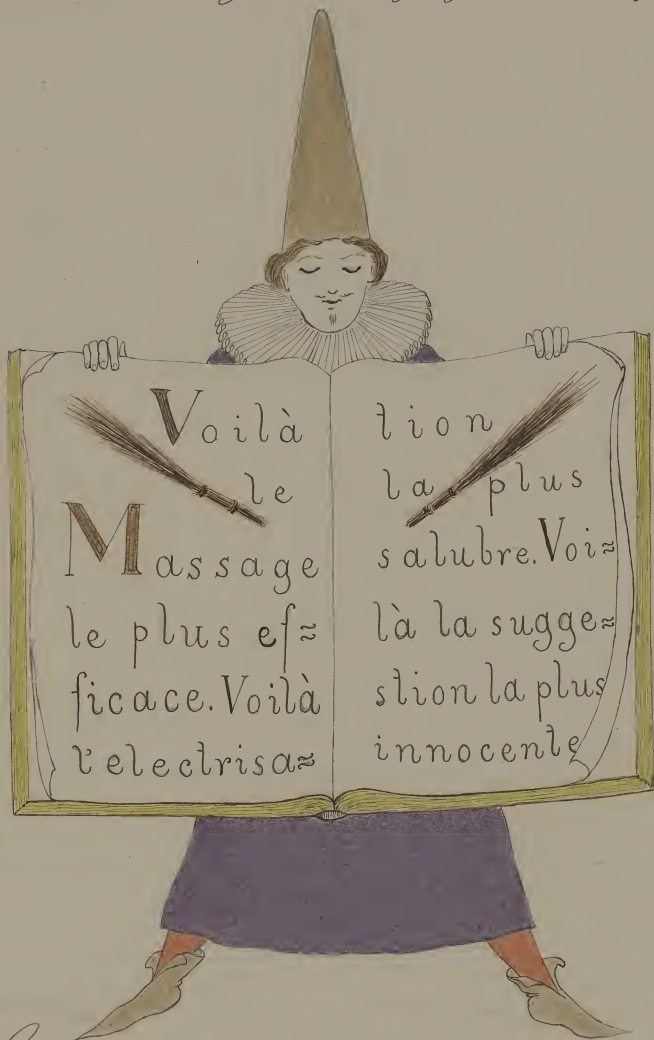 Voilà
le
Massage
le plus ef=
ficace. Voilà
l'electrisa=
tion
la plus
salubre. Voi=
là la sugge=
stion la plus
innocente